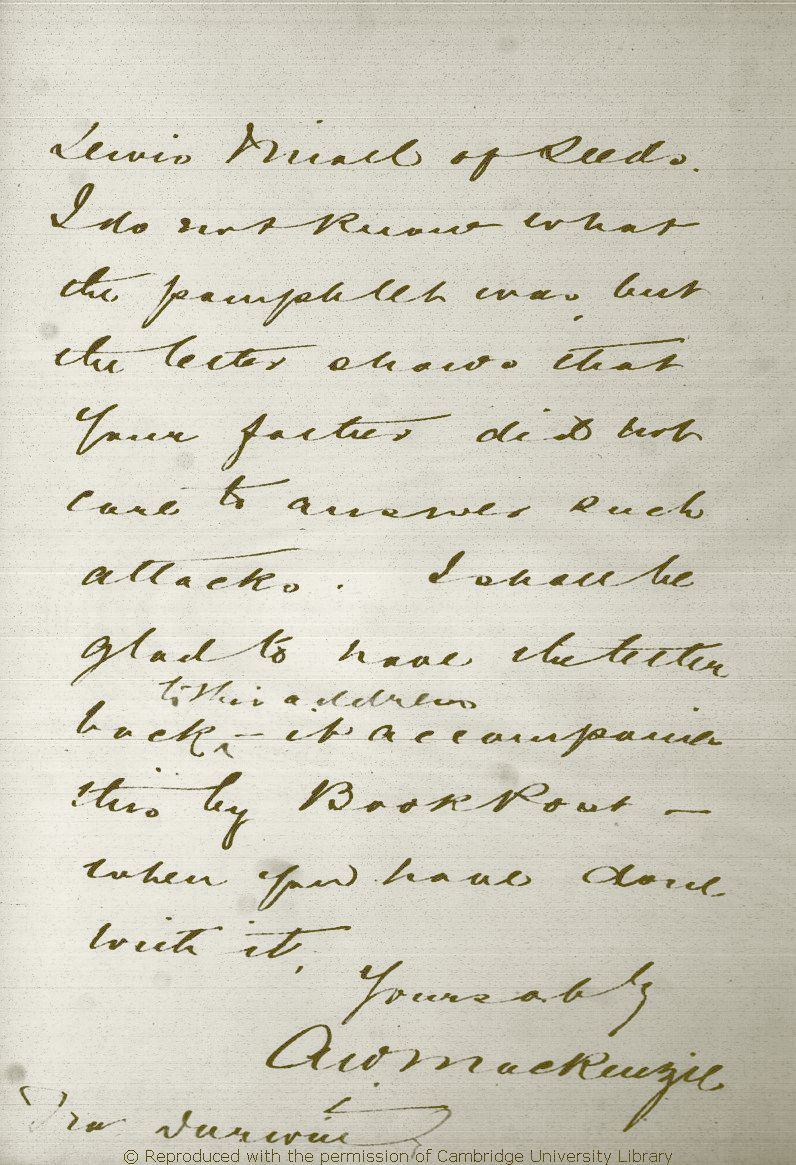 Lewis Miall of Leeds.
I do not know what
the pamphlet was, but
the letter shows that
your father did not
care to answer such
attacks. I shall be
glad to have the letter
to this address
back ^ – it accompanies
this by Book Post –
when you have done
with it.
Yours
A W Mackenzie
Darwin
© Reproduced with the permission of Cambridge University Library